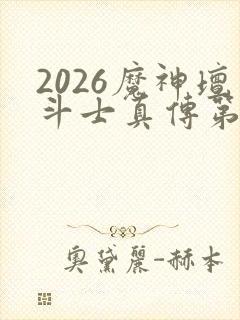 2026魔神壇
斗士真傳第
奧黛麗-赫本